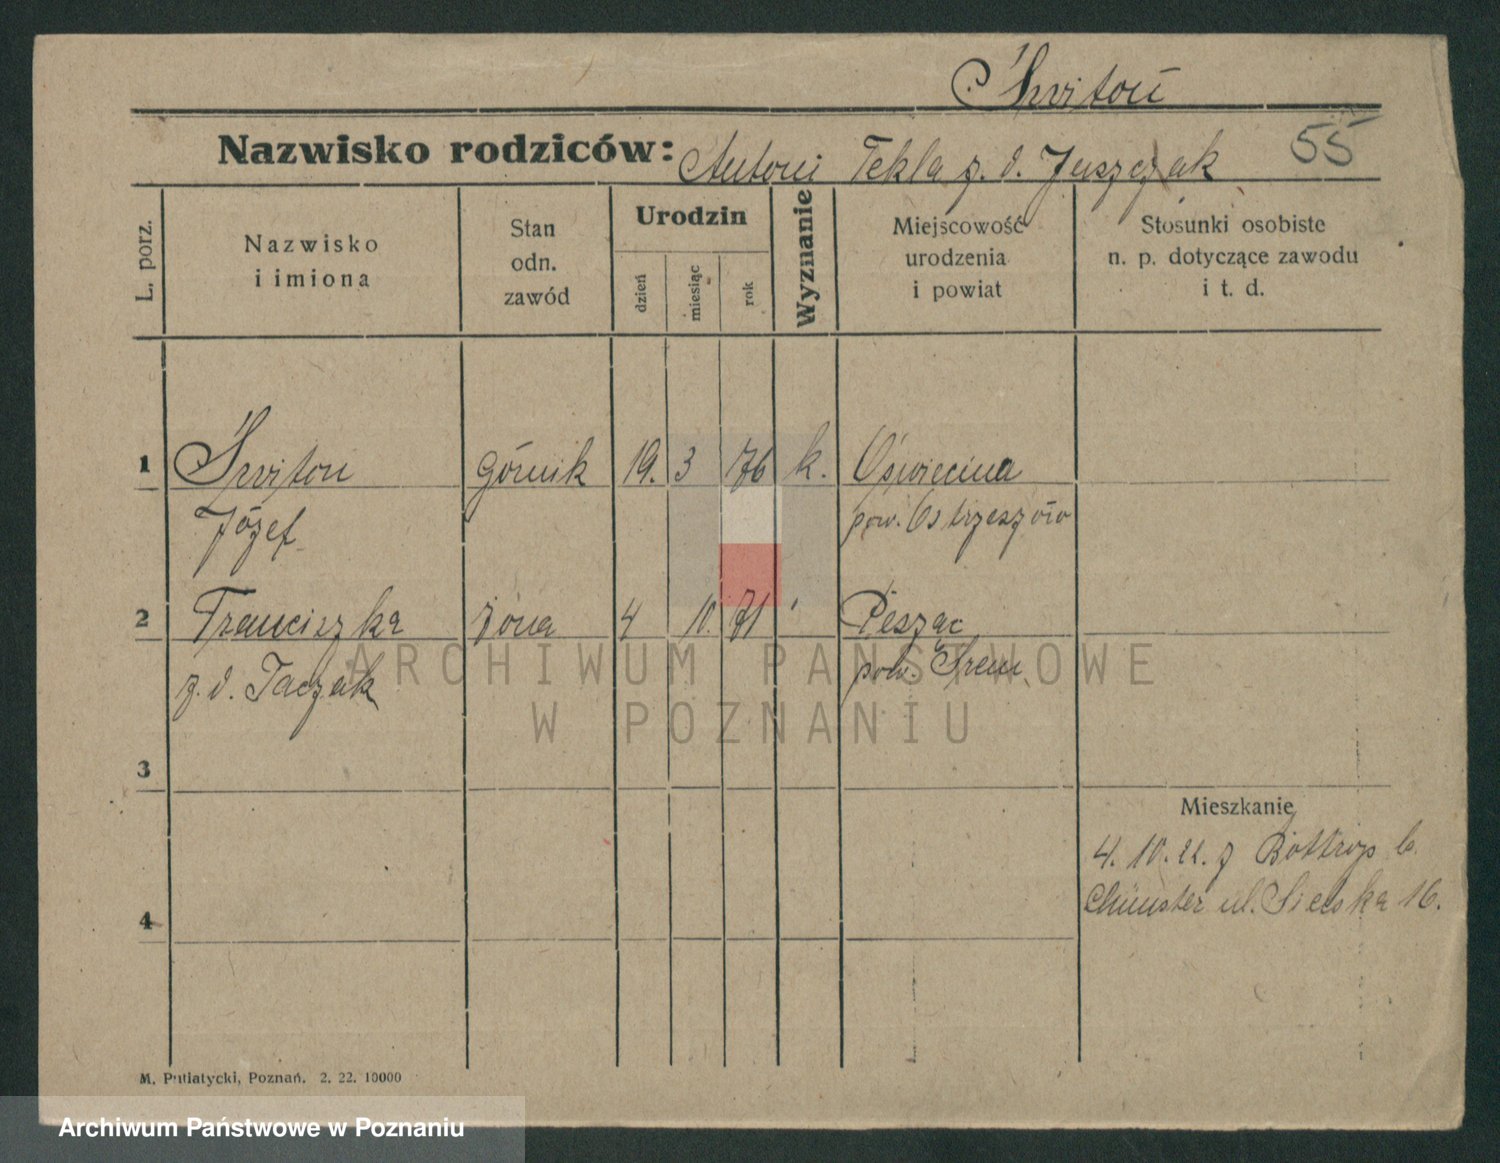 Świtoń
Nazwisko rodziców: Antoni Tekla z. d. Juszczak 55
L. porz.
Nazwisko
i imiona
Stan
odn.
zawód
Urodzin
dzień
miesiąc
rok
Wyznanie
Miejscowość
urodzenia
i powiat
Stosunki osobiste
n. p. dotyczące zawodu
i t. d.
1 Świtoń górnik 19. 3 76 k.
Józef pow. Ostrzeszów
2 Franciszka żona 4 10. 71
z. d. Taczak pow. Śrem
ARCHIWUM PAŃSTWOWE
W POZNANIU
3
Mieszkanie
4. 10. 22. z Bottrop b.
ul. Sieroka 16.
4
M. Putiatycki, Poznań. 2. 22. 10000
Archiwum Państwowe w Poznaniu